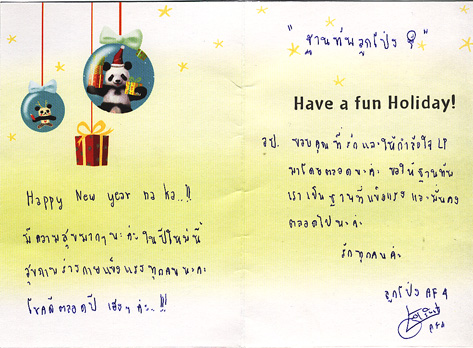 Happy New year na ka..!!
มีความสุขมากๆ นะค่ะ ในปีใหม่นี้
สุขภาพร่างกายแข็งแรง ทุกคนนะคะ
โชคดีตลอดปี เฮงๆ ค่ะ..!!!
"ฐานทัพลูกโป่ง"
Have a fun Holiday!
ลป. ขอบคุณที่รักและให้กำลังใจ LP
มาโดยตลอดนะค่ะ ขอให้ฐานทัพ
เราเป็นฐานที่แข็งแรง และมั่นคง
ตลอดไปนะค่ะ
รักทุกคนค่ะ
ลูกโป่ง AF4
AF4